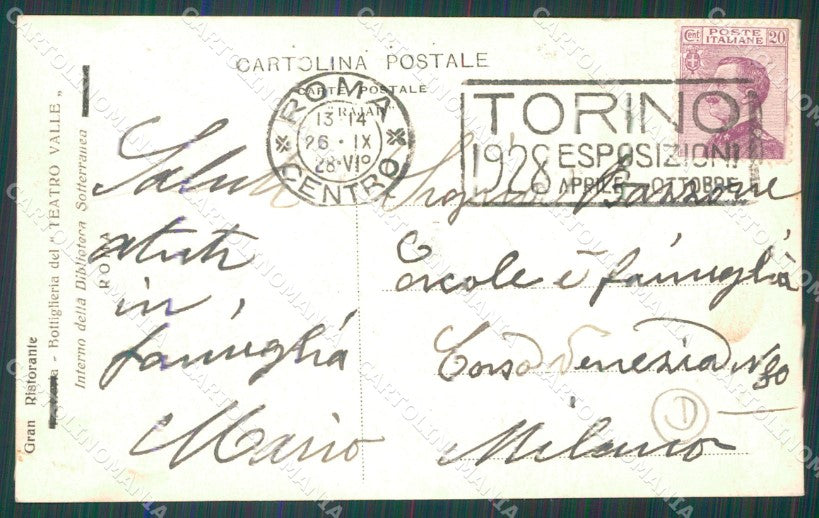 CARTOLINA POSTALE
CARTE POSTALE
POSTE
ITALIANE
Cent 20
ROMA
13-14
26·IX
28·VIº
CENTRO
TORINO
1928 ESPOSIZIONI
APRILE - OTTOBRE
Gran Ristorante
- Bottiglieria del "TEATRO VALLE"
Interno della Biblioteca Sotterranea
ROMA
Saluti
a tutti
in
famiglia
Mario
Signor
Ercole e famiglia
Corso Venezia N 30
Milano
D
CARTOLINOMANIA